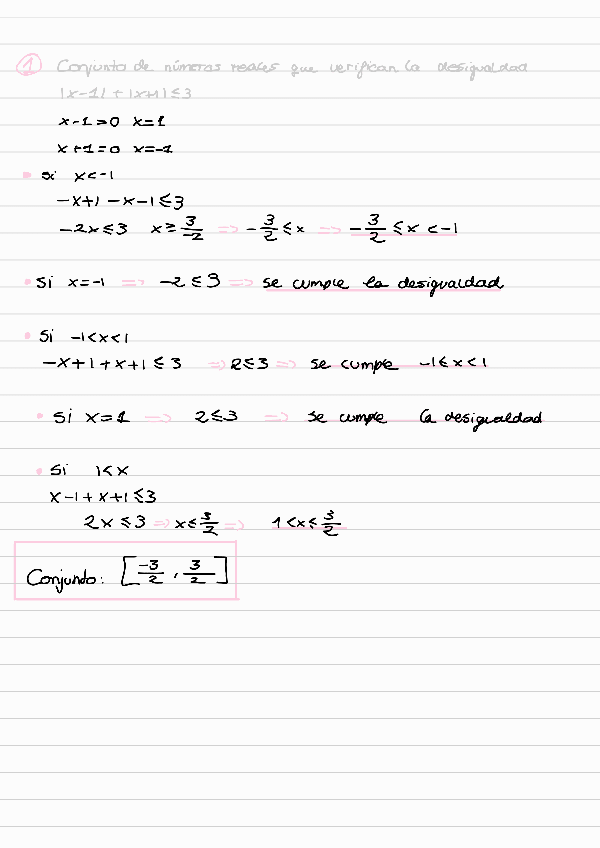 ① Conjunto de números reales que verifican la desigualdad
|x-1| + |x+1| ≤ 3
x-1=0 x=1
x+1=0 x=-1
• Si x<-1
-x+1 -x-1 ≤ 3
-2x ≤ 3 x ≥ 3/-2 => -3/2 ≤ x => -3/2 ≤ x < -1
• Si x=-1 => -2 ≤ 3 => se cumple la desigualdad
• Si -1<x<1
-x+1+x+1 ≤ 3 => 2≤3 => se cumple -1≤x<1
• Si x=1 => 2≤3 => se cumple la desigualdad
• Si 1<x
x-1+x+1 ≤ 3
2x ≤ 3 => x ≤ 3/2 => 1<x≤ 3/2
Conjunto: [-3/2, 3/2]